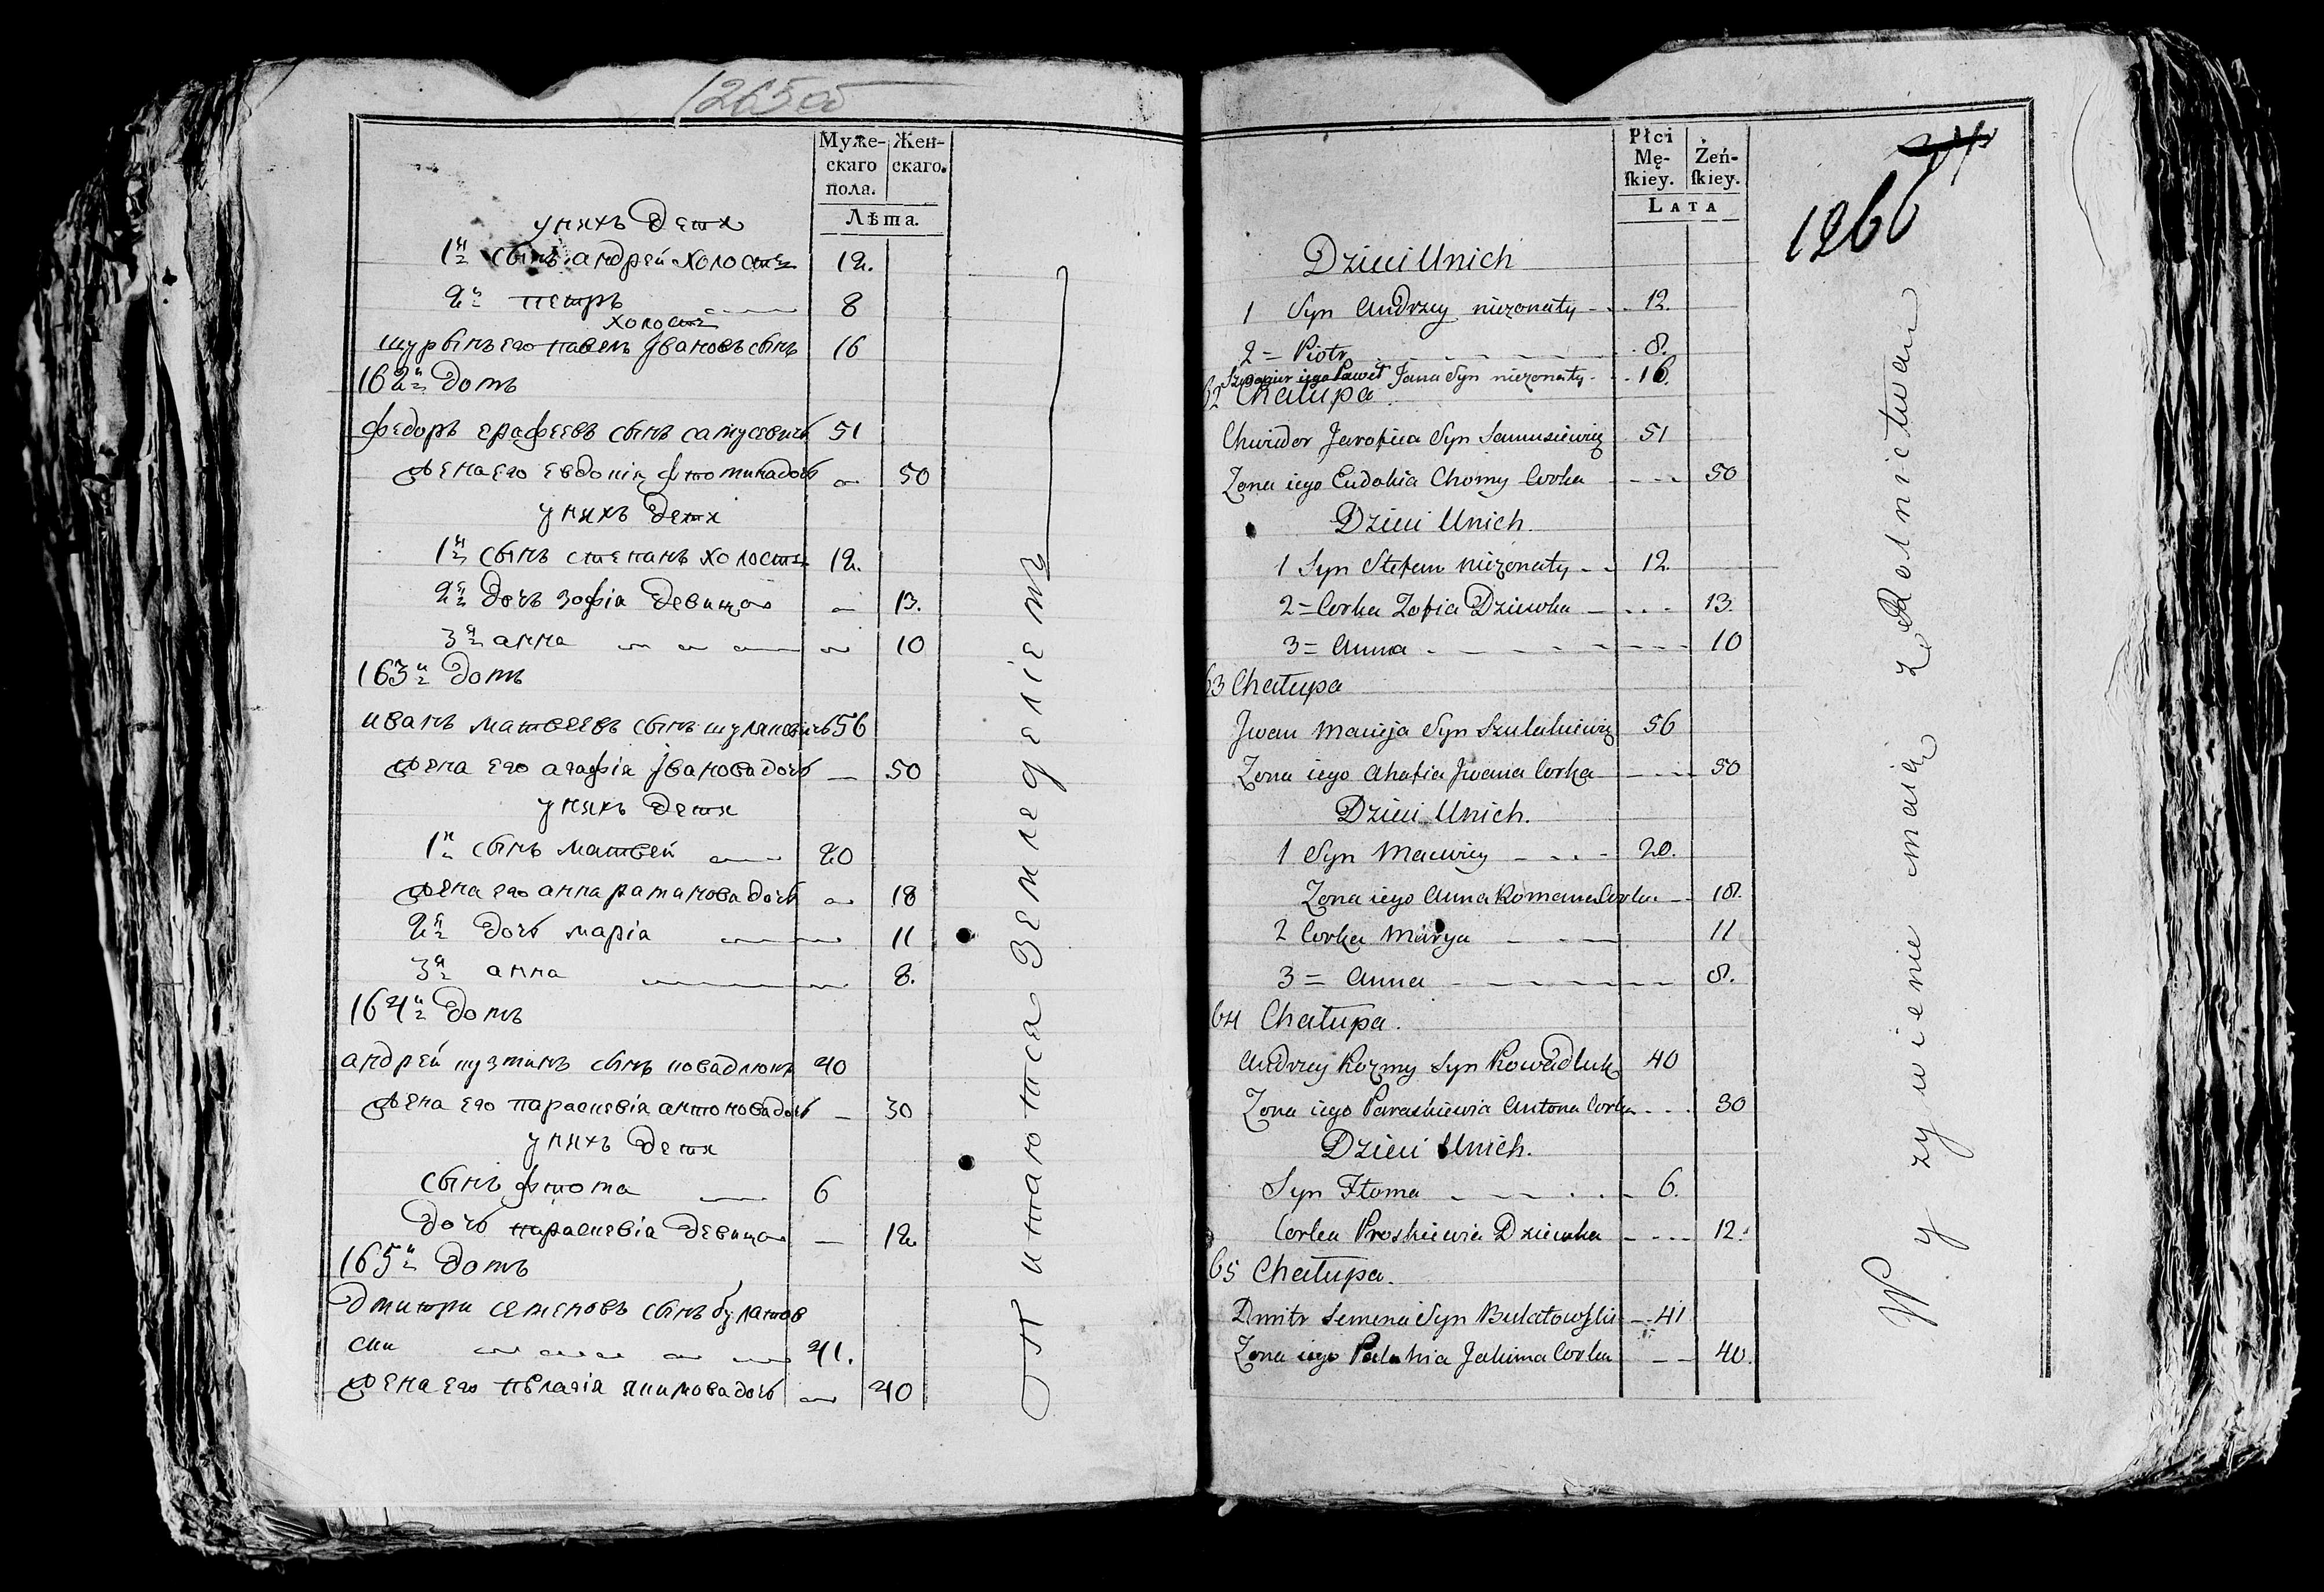 1265об
Муже-
скаго
пола.
Жен-
скаго.
Лѣта.
у нихъ дети
1й сынъ андрей холостъ 12.
2й петръ 8
холостъ
шурынъ его павелъ Ивановъ сынъ 16
162й домъ
федоръ ерафеевъ сынъ самусевичъ 51
жена его евдокія фтомина дочь 50
у нихъ дети
1й сынъ степанъ холостъ 12.
2я дочь зофія девица 13.
3я анна 10
163й домъ
иванъ матвеевъ сынъ шулякевичъ 56
жена его агафія Иванова дочь 50
у нихъ дети
1й сынъ матвей 20
жена его анна раманова дочь 18
2я дочь марія 11
3я анна 8.
164й домъ
андрей кузминъ сынъ ковадлюкъ 40
жена его параскевія антонова дочь 30
у нихъ дети
сынъ фтома 6
дочь параскевія девица 12
165й домъ
дмитри семеновъ сынъ булатов
ски 41.
жена его пелагія якимова дочь 40
питаются земледеліемъ
1266
Płci
Mę-
ſkiey.
Żeń-
ſkiey.
LATA
Dzieci Unich
1 Syn Andrzey niezonaty 12.
2 = Piotr 8.
Szwagier iego Paweł Jana Syn niezonaty 16.
62 Chałupa
Chwiedor Jarofiea Syn Samusiewicz 51
Zona iego Eudokia Chomy Corka 50
Dzieci Unich.
1 Syn Stefan niezonaty 12.
2 = Corka Zofia Dziewka 13.
3 = Anna 10
63 Chałupa
Jwan Macieja Syn Szulakiewicz 56
Zona iego Ahafia Jwana Corka 50
Dzieci Unich.
1 Syn Maciey 20.
Zona iego Anna Romana Corka 18.
2 Corka Marya 11
3 = Anna 8.
64 Chałupa.
Andrzey Kozmy Syn Kowadluk 40
Zona iego Paraskiewia Antona Corka 30
Dzieci Unich.
Syn Ftoma 6.
Corka Proskiewia Dziewka 12.
65 Chałupa.
Dmitr Semena Syn Bulatowski 41
Zona iego Palahia Jakima Corka 40.
Wyzywienie maią z Rolnictwa